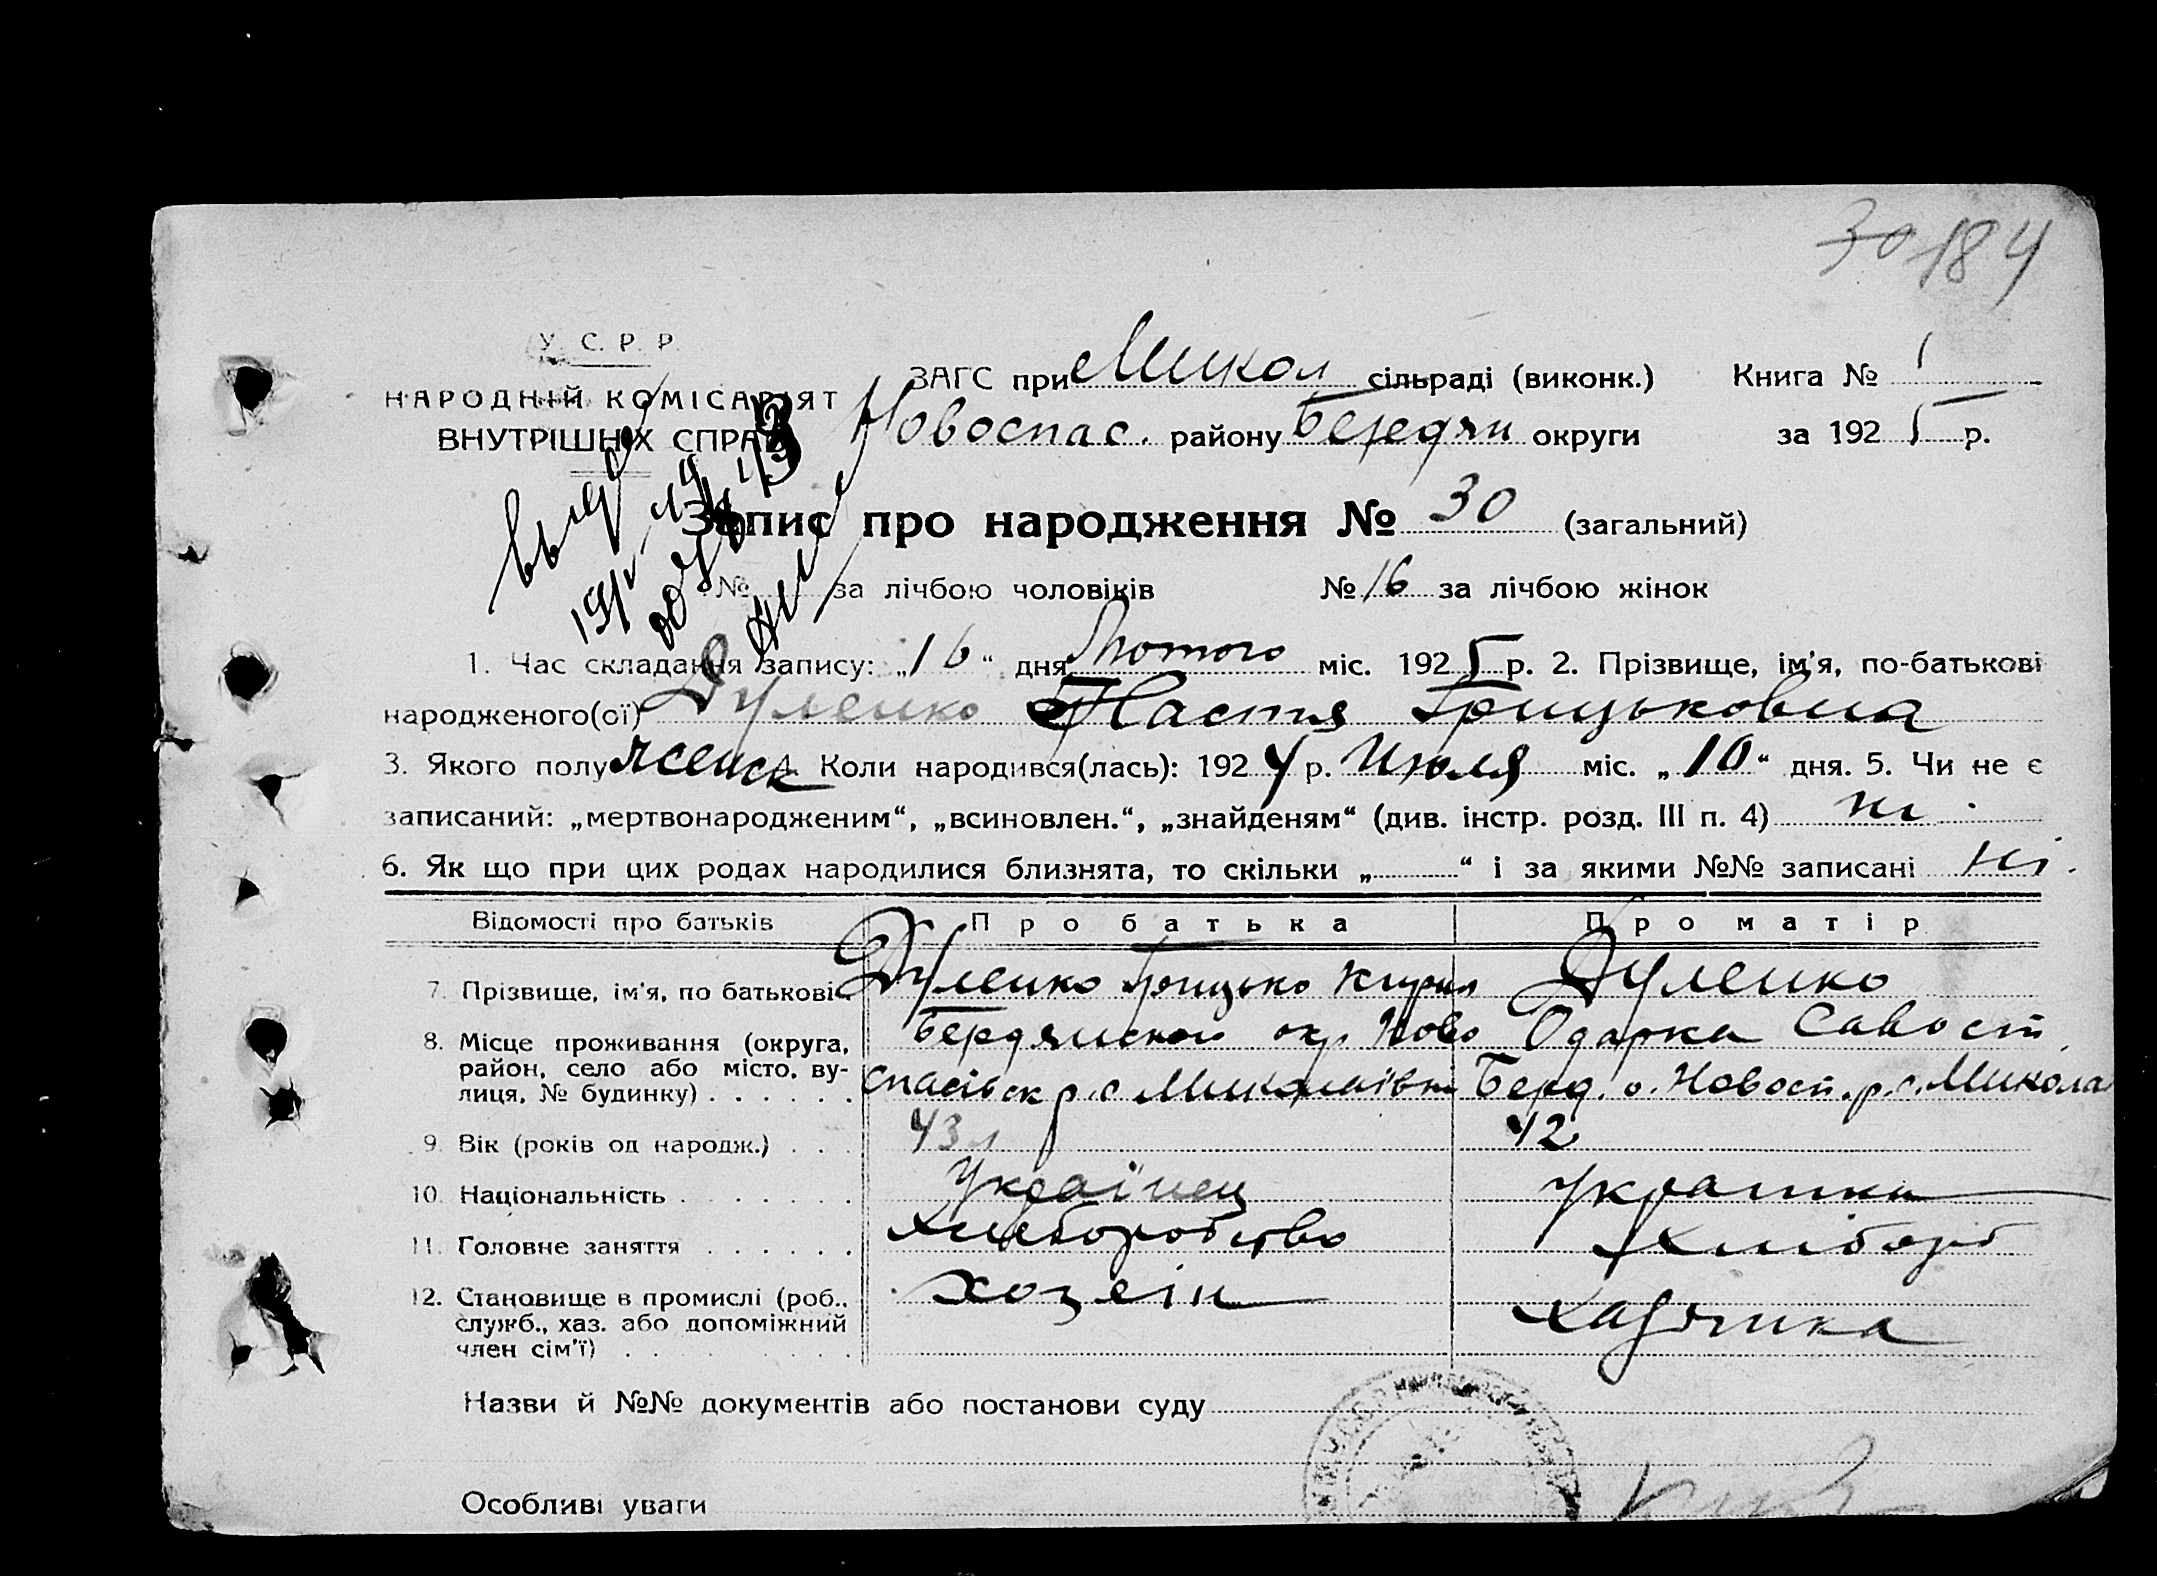 30 184
У. С. Р. Р.
НАРОДНІЙ КОМІСАРІЯТ
ВНУТРІШНІХ СПРАВ
ЗАГС при Микол сільраді (виконк.) Книга № 1
Новоспас. району Бердян округи за 1925 р.
Запис про народження № 30 (загальний)
№ за лічбою чоловіків № 16 за лічбою жінок
1. Час складання запису: „16“ дня Лютого міс. 1925 р. 2. Прізвище, ім'я, по-батькові
народженого(ої) Дуленко Настя Грицьковна
3. Якого полу женск 4. Коли народився(лась): 1924 р. Июля міс. „10“ дня. 5. Чи не є
записаний: „мертвонародженим“, „всиновлен.“, „знайденям“ (див. інстр. розд. III п. 4) ні
6. Як що при цих родах народилися близнята, то скільки „ “ і за якими №№ записані ні.
Відомості про батьків Про батька Про матір
7. Прізвище, ім'я, по батькові Дуленко Грицько Кирил Дуленко
8. Місце проживання (округа, Бердянской окр Ново Одарка Савост
район, село або місто, ву-
лиця, № будинку) Спаськ р. с Миколаівк Берд. о. Новосп. р. с. Микола
9. Вік (років од народж.) 43 л 42
10. Національність Українец украинка
11. Головне заняття хлиборобство хлібороб
12. Становище в промислі (роб., хозеін
служб., хаз. або допоміжний хазяика
член сім'ї)
Назви й №№ документів або постанови суду
Особливі уваги